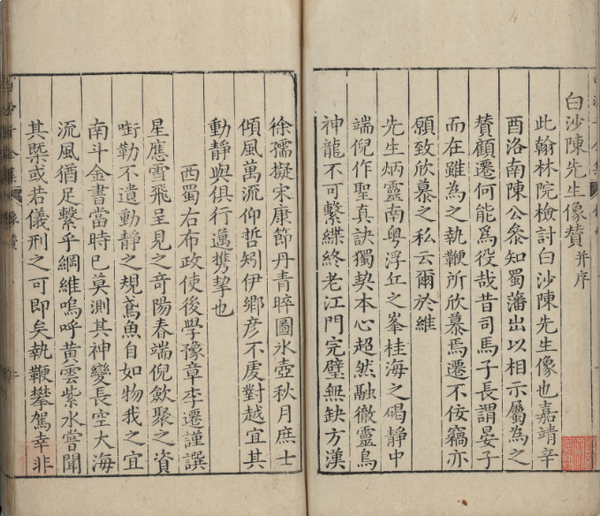 白沙陳先生像賛并序
此翰林院檢討白沙陳先生像也嘉靖辛
酉洛南陳公叅知蜀藩出以相示屬為之
賛顧遷何能為役哉昔司馬子長謂晏子
而在雖為之執鞭所欣慕焉遷不佞竊亦
願致欣慕之私云爾於維
先生炳靈南粤浮丘之峯桂海之碣靜中
端倪作聖真訣獨契本心超然融徹靈鳥
神龍不可繫緤終老江門完璧無缺方漢
徐孺擬宋康節丹青晬圖氷壺秋月庶士
傾風萬流仰哲矧伊鄉彦不廢對越宜其
動靜與俱行邁携挈也
西蜀右布政使後學豫章李遷謹譔
星應雪飛呈見之竒陽春端倪歛聚之資
㘅勒不遺動靜之規鳶魚自如物我之宜
南斗金書當時已莫測其神變長空大海
流風猶足繫乎綱維嗚呼黃雲紫水嘗聞
其槩或若儀刑之可即矣執鞭攀駕幸非